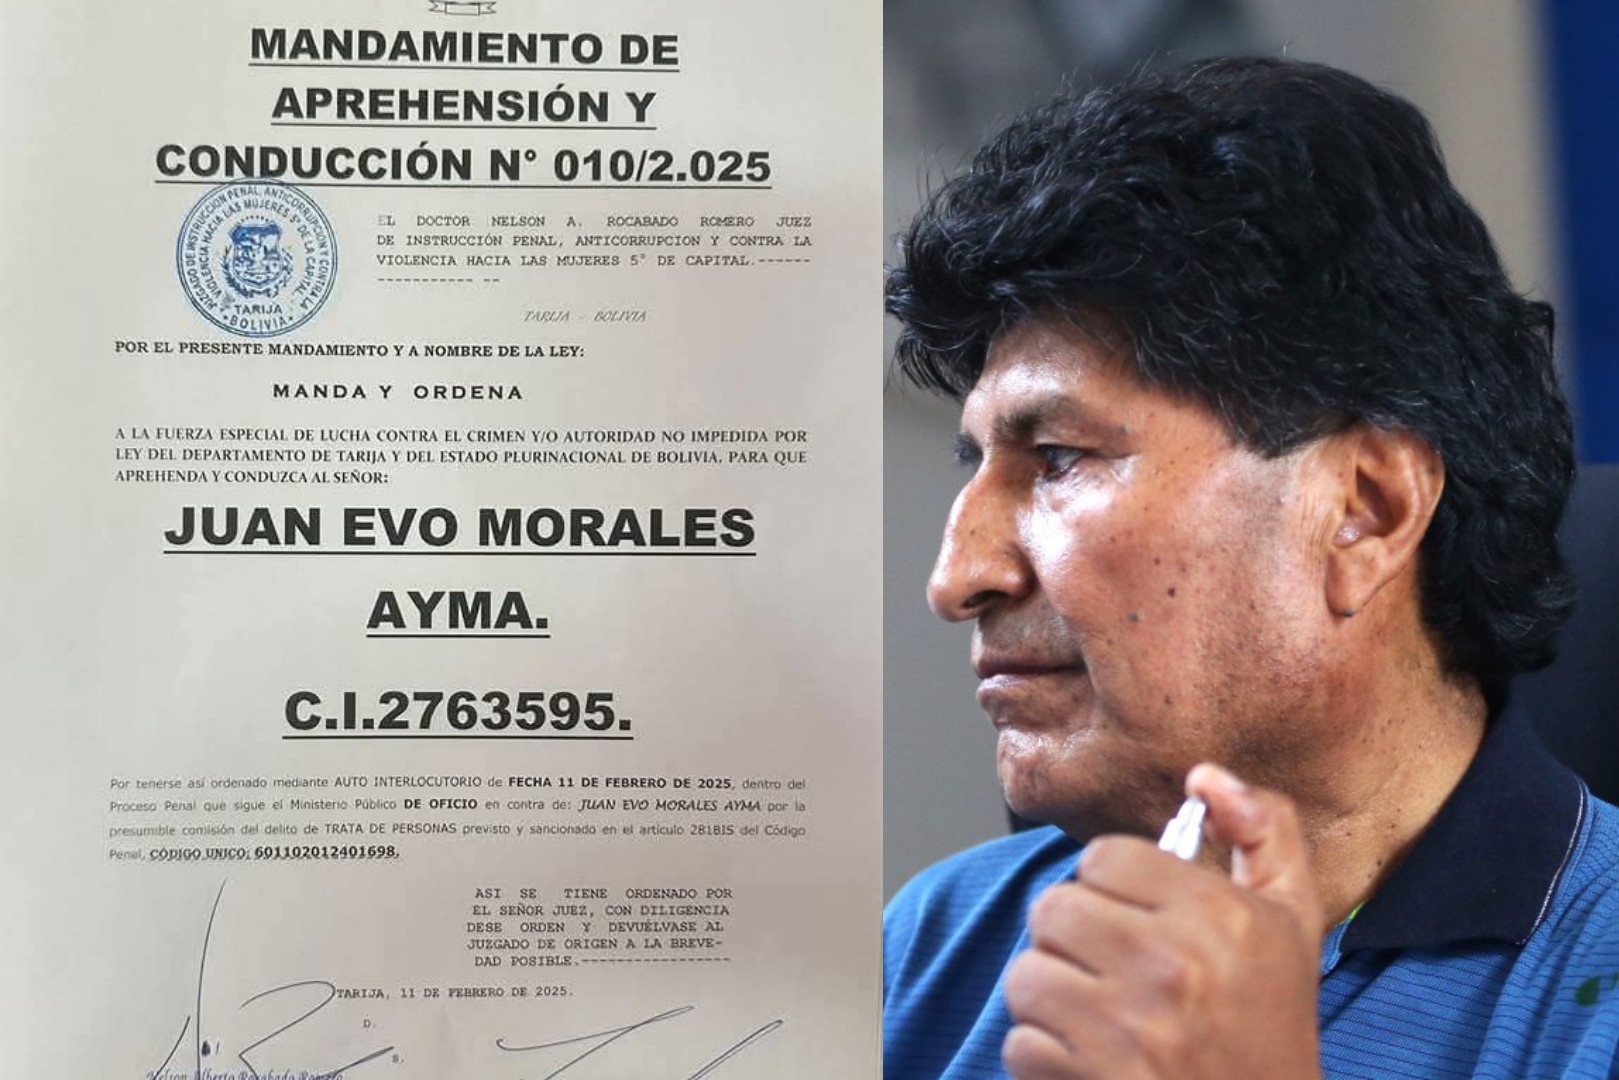 MANDAMIENTO DE
APREHENSIÓN Y
CONDUCCIÓN N° 010/2.025
JUZGADO DE INSTRUCCION PENAL, ANTICORRUPCION Y CONTRA LA
VIOLENCIA HACIA LAS MUJERES 5° DE LA CAPITAL
TARIJA
BOLIVIA
EL DOCTOR NELSON A. ROCABADO ROMERO JUEZ
DE INSTRUCCIÓN PENAL, ANTICORRUPCION Y CONTRA LA
VIOLENCIA HACIA LAS MUJERES 5° DE CAPITAL.------
----------- --
TARIJA - BOLIVIA
POR EL PRESENTE MANDAMIENTO Y A NOMBRE DE LA LEY:
MANDA Y ORDENA
A LA FUERZA ESPECIAL DE LUCHA CONTRA EL CRIMEN Y/O AUTORIDAD NO IMPEDIDA POR
LEY DEL DEPARTAMENTO DE TARIJA Y DEL ESTADO PLURINACIONAL DE BOLIVIA, PARA QUE
APREHENDA Y CONDUZCA AL SEÑOR:
JUAN EVO MORALES
AYMA.
C.I.2763595.
Por tenerse así ordenado mediante AUTO INTERLOCUTORIO de FECHA 11 DE FEBRERO DE 2025, dentro del
Proceso Penal que sigue el Ministerio Público DE OFICIO en contra de: JUAN EVO MORALES AYMA por la
presumible comisión del delito de TRATA DE PERSONAS previsto y sancionado en el artículo 281BIS del Código
Penal, CÓDIGO UNICO: 601102012401698.
ASI SE TIENE ORDENADO POR
EL SEÑOR JUEZ, CON DILIGENCIA
DESE ORDEN Y DEVUÉLVASE AL
JUZGADO DE ORIGEN A LA BREVE-
DAD POSIBLE.-----------------
TARIJA, 11 DE FEBRERO DE 2025.
D.
S.
Nelson Alberto Rocabado Romero